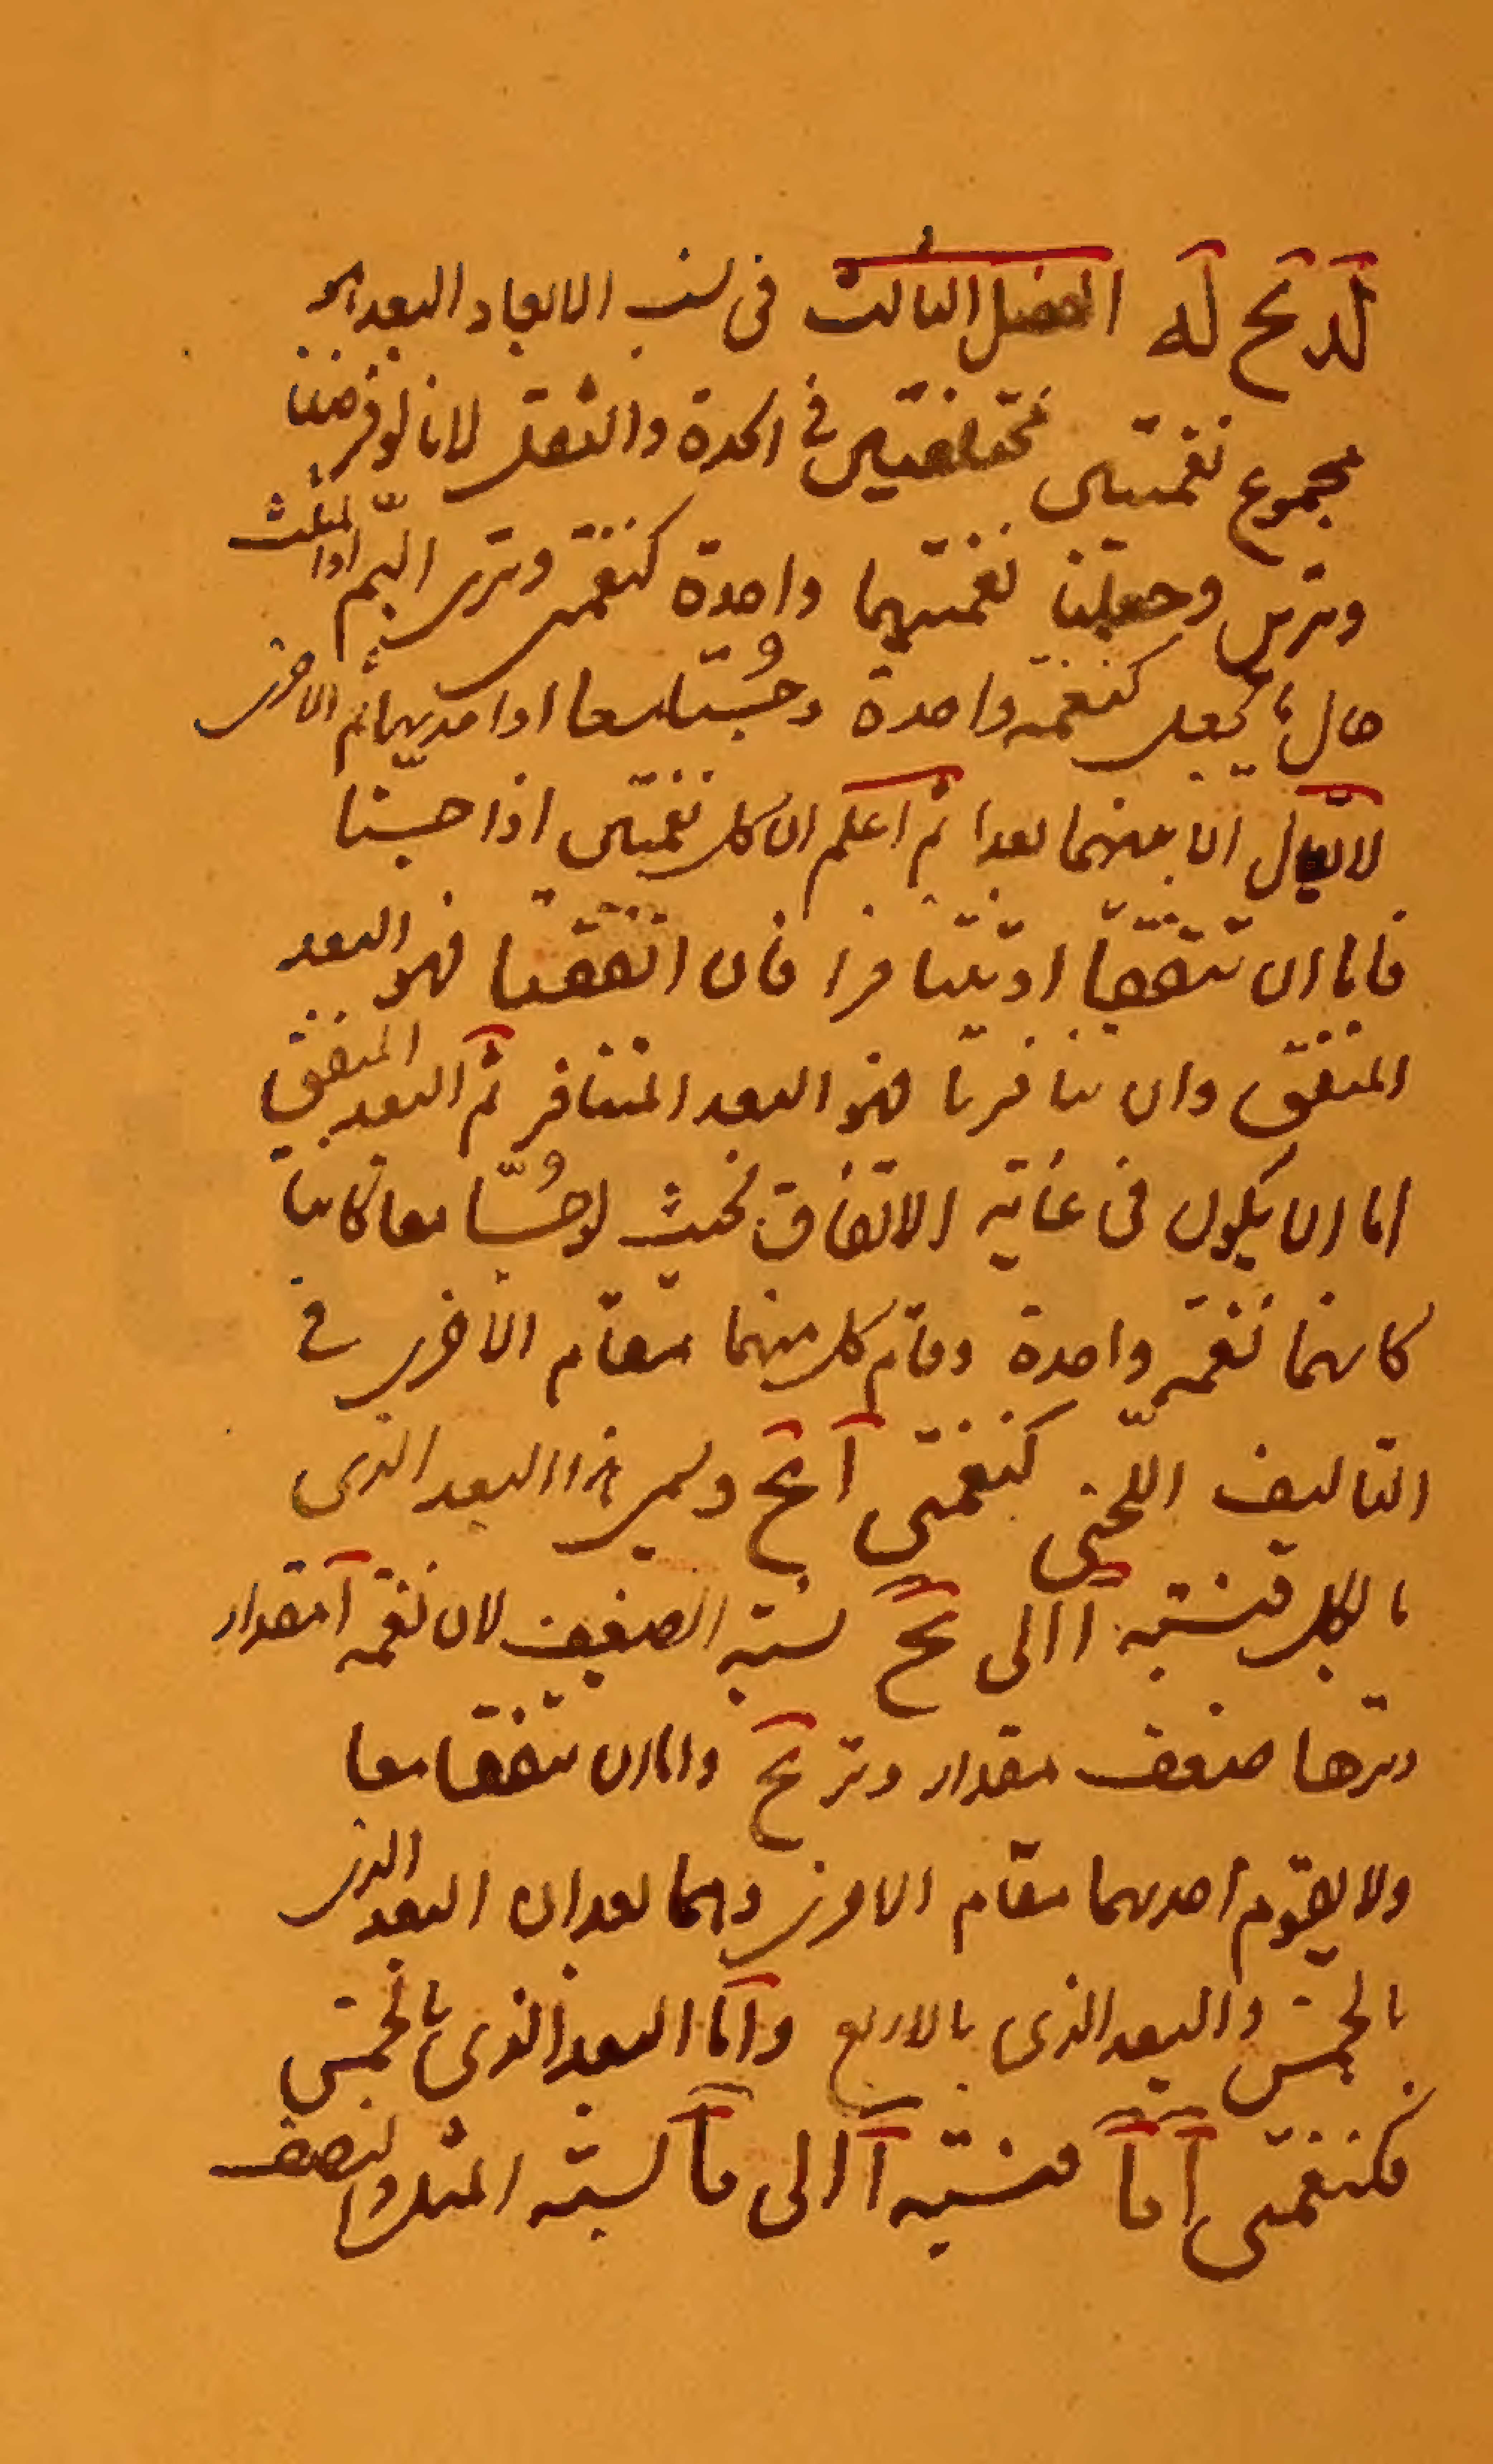 لد يح له الفصل الثالث فى نسب الابعاد البعد هو
مجموع نغمتين مختلفتين فى الحدة والثقل لانا لو فرضنا
وترين وجعلنا نغمتيهما واحدة كنغمتى وترى البم او المثلث
حال كنغمة واحدة وجُسّتا معا او احديهما ثم الاخرى
لا يقال ان بينهما بعدا ثم اعلم ان كل نغمتين اذا جسّتا
فاما ان تتفقا او تتنافرا فان اتفقتا فهو البعد
المتفق وان تنافرتا فهو البعد المتنافر ثم البعد المتفق
اما ان يكون فى غاية الاتفاق بحيث لو جُسّتا معا كانتا
كانهما نغمة واحدة وقام كل منهما مقام الاخرى فى
التاليف اللحنى كنغمتى آ يح ويسمى هذا البعد الذى
بالكل فنسبة آ الى يح نسبة الضعف لان نغمة آ مقدار
وترها ضعف مقدار وتر يح واما ان تتفقا معا
ولا يقوم احديهما مقام الاخرى وهما بعدان البعد الذى
بالخمس والبعد الذى بالاربع واما البعد الذى بالخمس
فكنغمتى آ يا فنسبة آ الى يا نسبة المثل والنصف